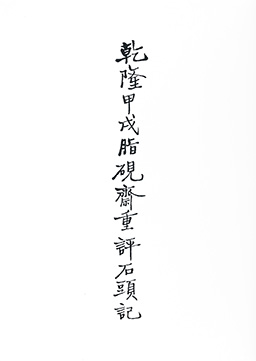 乾隆甲戌脂硯齋重評石頭記